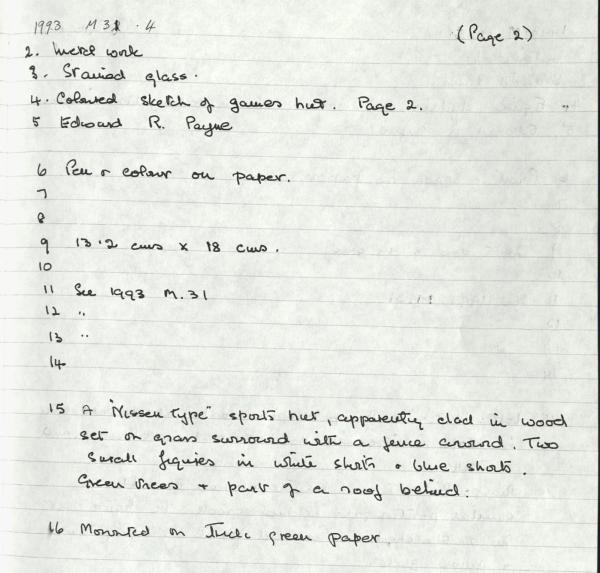 1993 M 31 . 4
(Page 2)
2. Metal work
3. Stained glass.
4. Coloured sketch of games hut. Page 2.
5 Edward R. Payne
6 Pen & colour on paper.
7
8
9 13.2 cms x 18 cms.
10
11 See 1993 M.31
12 "
13 "
14
15 A "Nissen type" sports hut, apparently clad in wood
set on grass surround with a fence around. Two
small figures in white shirts & blue shorts.
Green trees + part of a roof behind.
16 Mounted on green paper